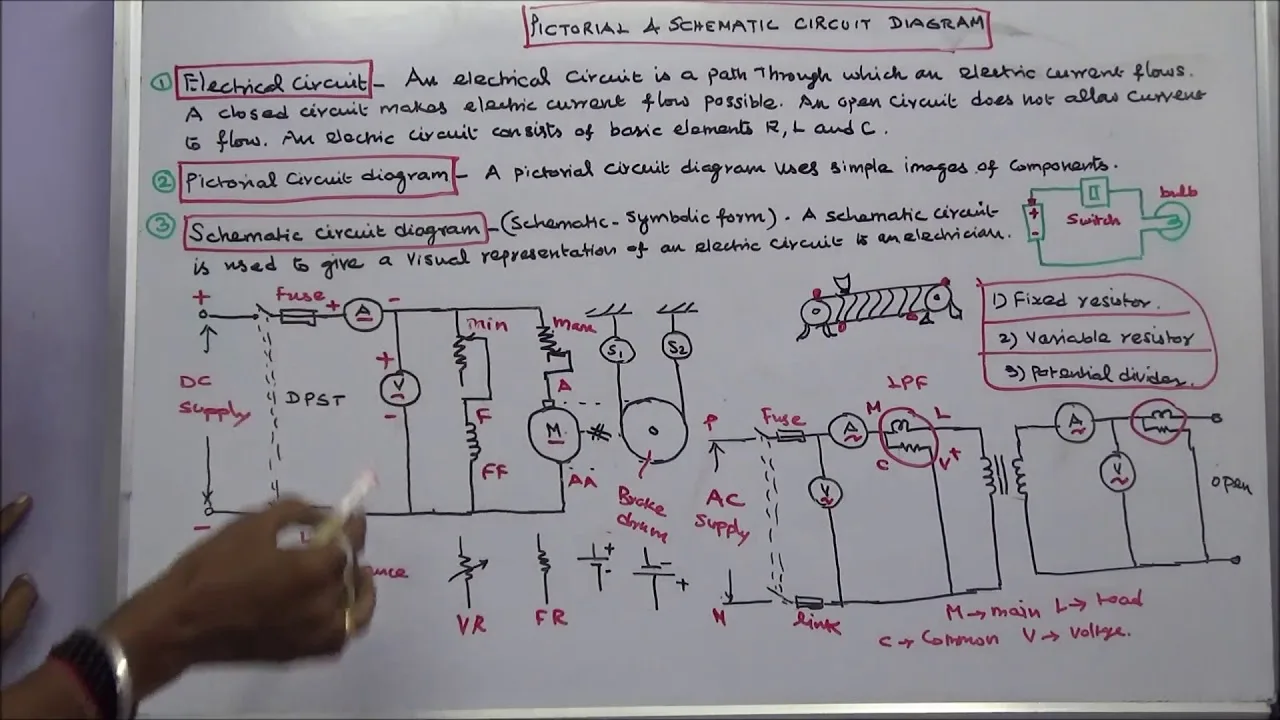 PICTORIAL & SCHEMATIC CIRCUIT DIAGRAM
① Electrical Circuit - An electrical circuit is a path through which an electric current flows.
A closed circuit makes electric current flow possible. An open circuit does not allow current
to flow. An electric circuit consists of basic elements R, L and C.
② Pictorial Circuit diagram - A pictorial circuit diagram uses simple images of components.
③ Schematic circuit diagram - (Schematic - Symbolic form). A schematic circuit
is used to give a visual representation of an electric circuit to an electrician.
+ -
Switch
bulb
1) Fixed resistor.
2) Variable resistor
3) Potential divider.
+ Fuse + A -
min
max
S1 S2
DC
Supply
DPST
+ V -
A
F
M
FF
AA
Brake
drum
-
VR
FR
+ -
- +
LPF
P Fuse A M L
C V+
V
AC
Supply
N
link
A
V
open
M → main L → Load
C → Common V → Voltage.